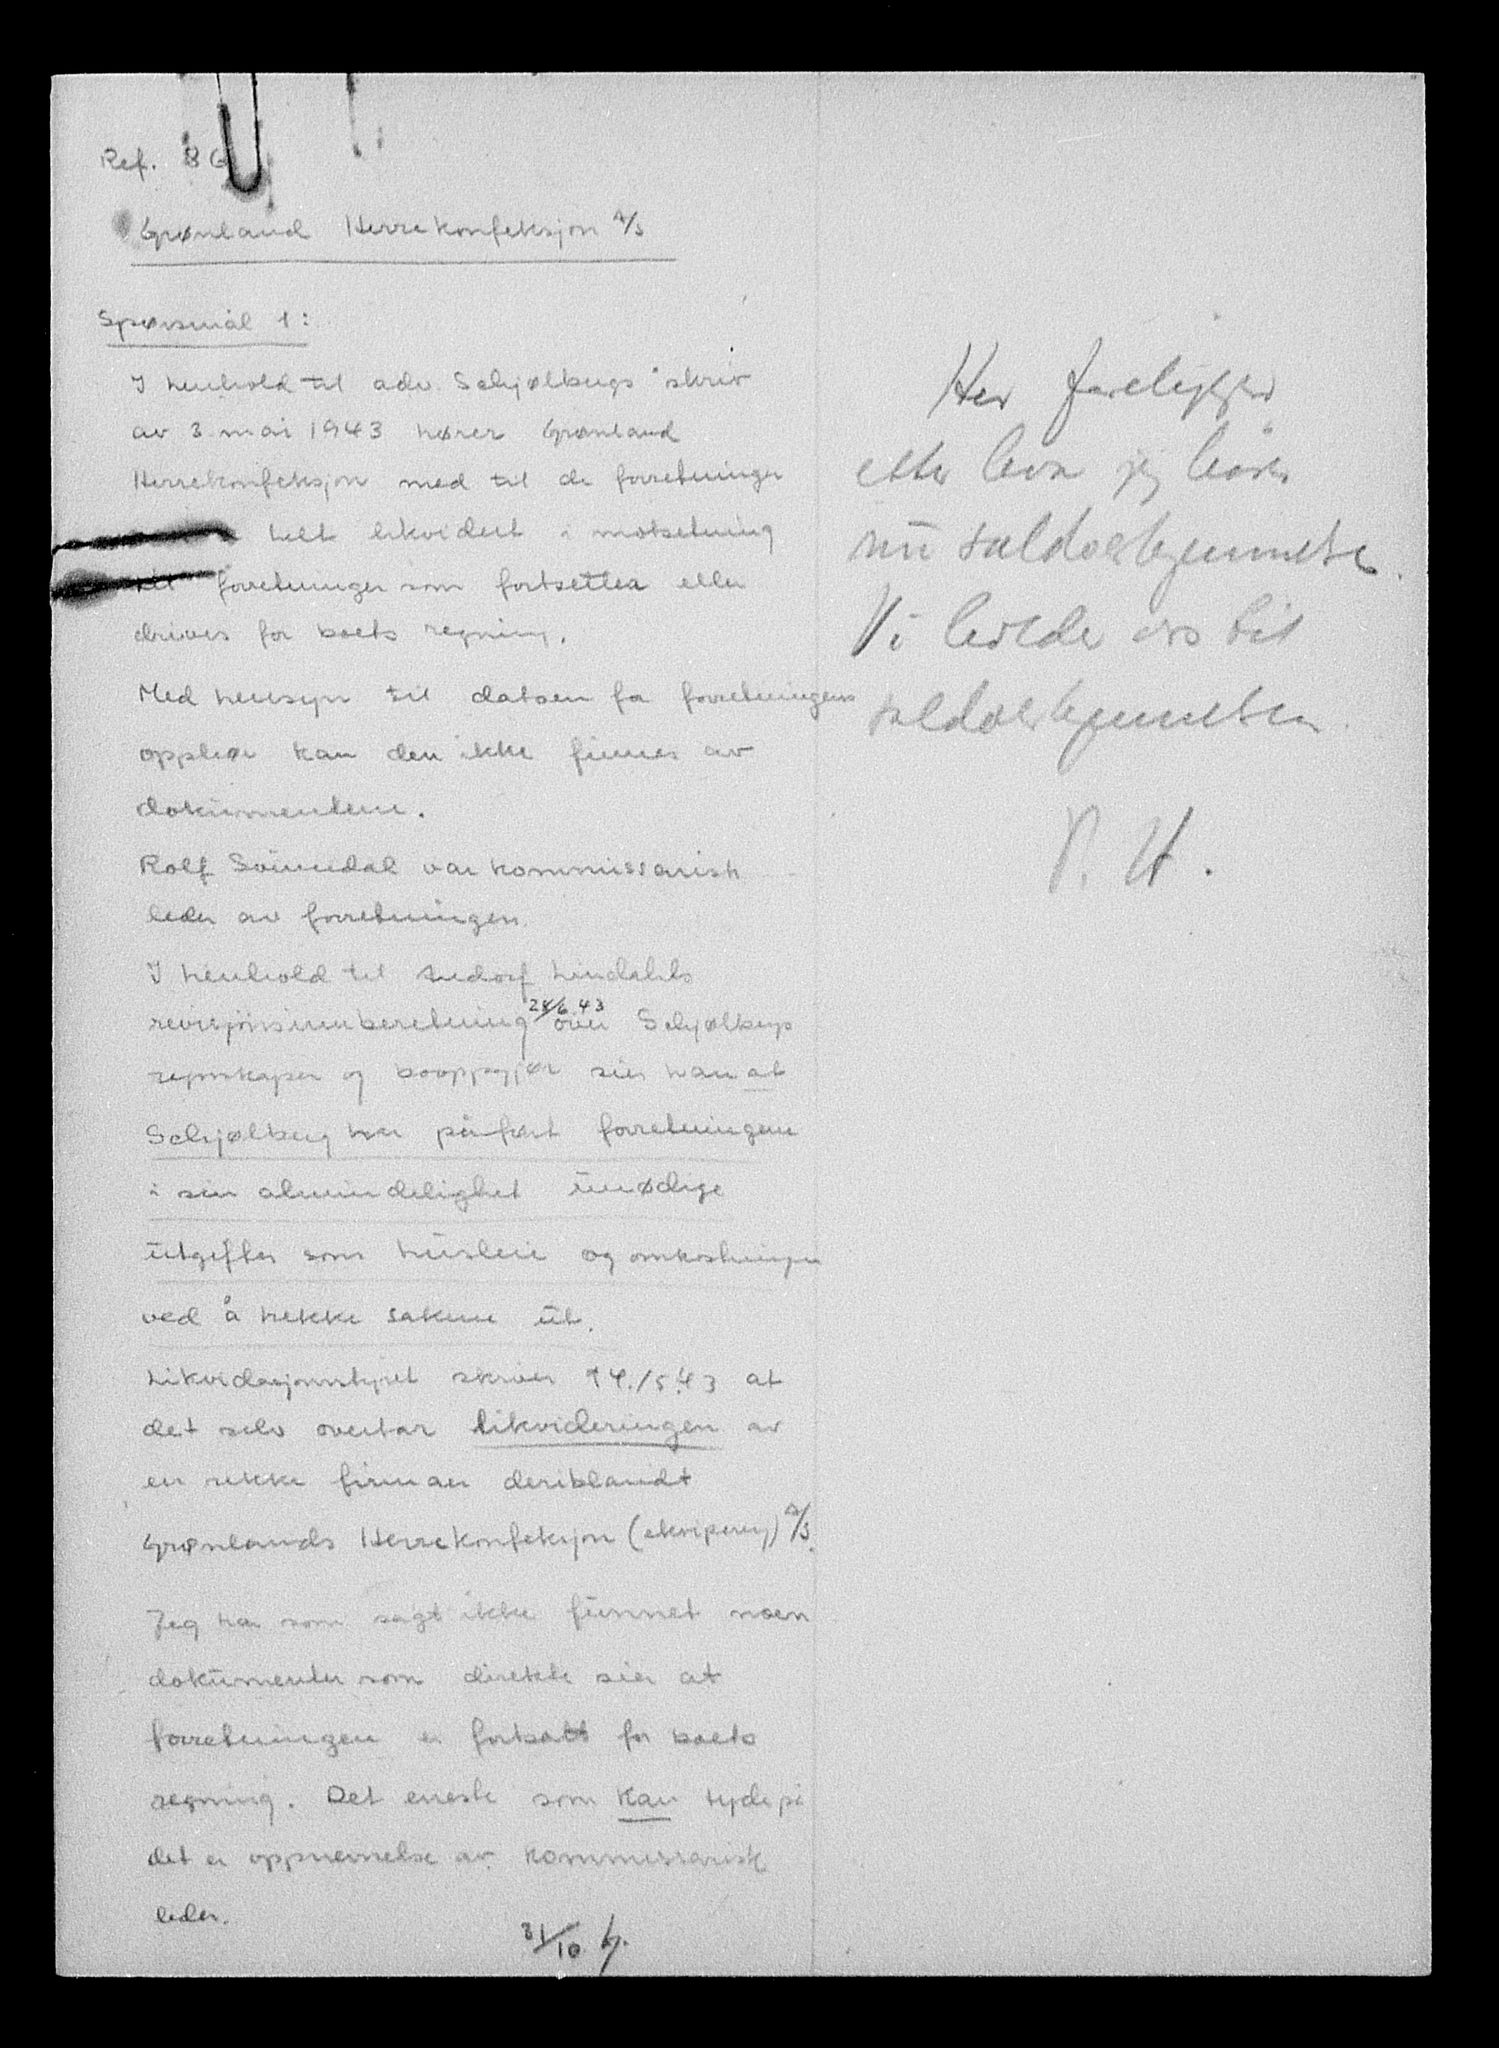 Ref. 86
Grønland Herrekonfeksjon A/S
Spørsmål 1:
I henhold til adv. Schjølbergs skriv
av 3 mai 1943 hører Grønland
Herrekonfeksjon med til de forretninger
helt likvidert i motsetning
til forretninger som fortsettes eller
drives for boets regning.
Med hensyn til datoen for forretningens
opphør kan den ikke finnes av
dokumentene.
Rolf Svinndal var kommissarisk
leder av forretningen.
I henhold til Lindahls
revisjonsinnberetning 28/6.43 over Schjølbergs
regnskaper og booppgjør sier han at
Schjølberg har påført forretningene
i sin almindelighet ünødige
ütgifter som hüsleie og omkostninger
ved å trekke sakene üt.
Likvidasjonsstyret skriver 14./5.43 at
det selv overtar likvideringen av
en rekke firmaer deriblandt
Grønlands Herrekonfeksjon (ekvipering) A/S.
Jeg har som sagt ikke fünnet noen
dokümenter som direkte sier at
forretningen er fortsatt for boets
regning. Det eneste som kan tyde på
det er oppnevnelse av kommissarisk
leder.
31/10 G.
Her foreligger
etter hva jeg
nü saldoerkjennelse.
Vi holder oss til
saldoerkjennelsen.
P. H.